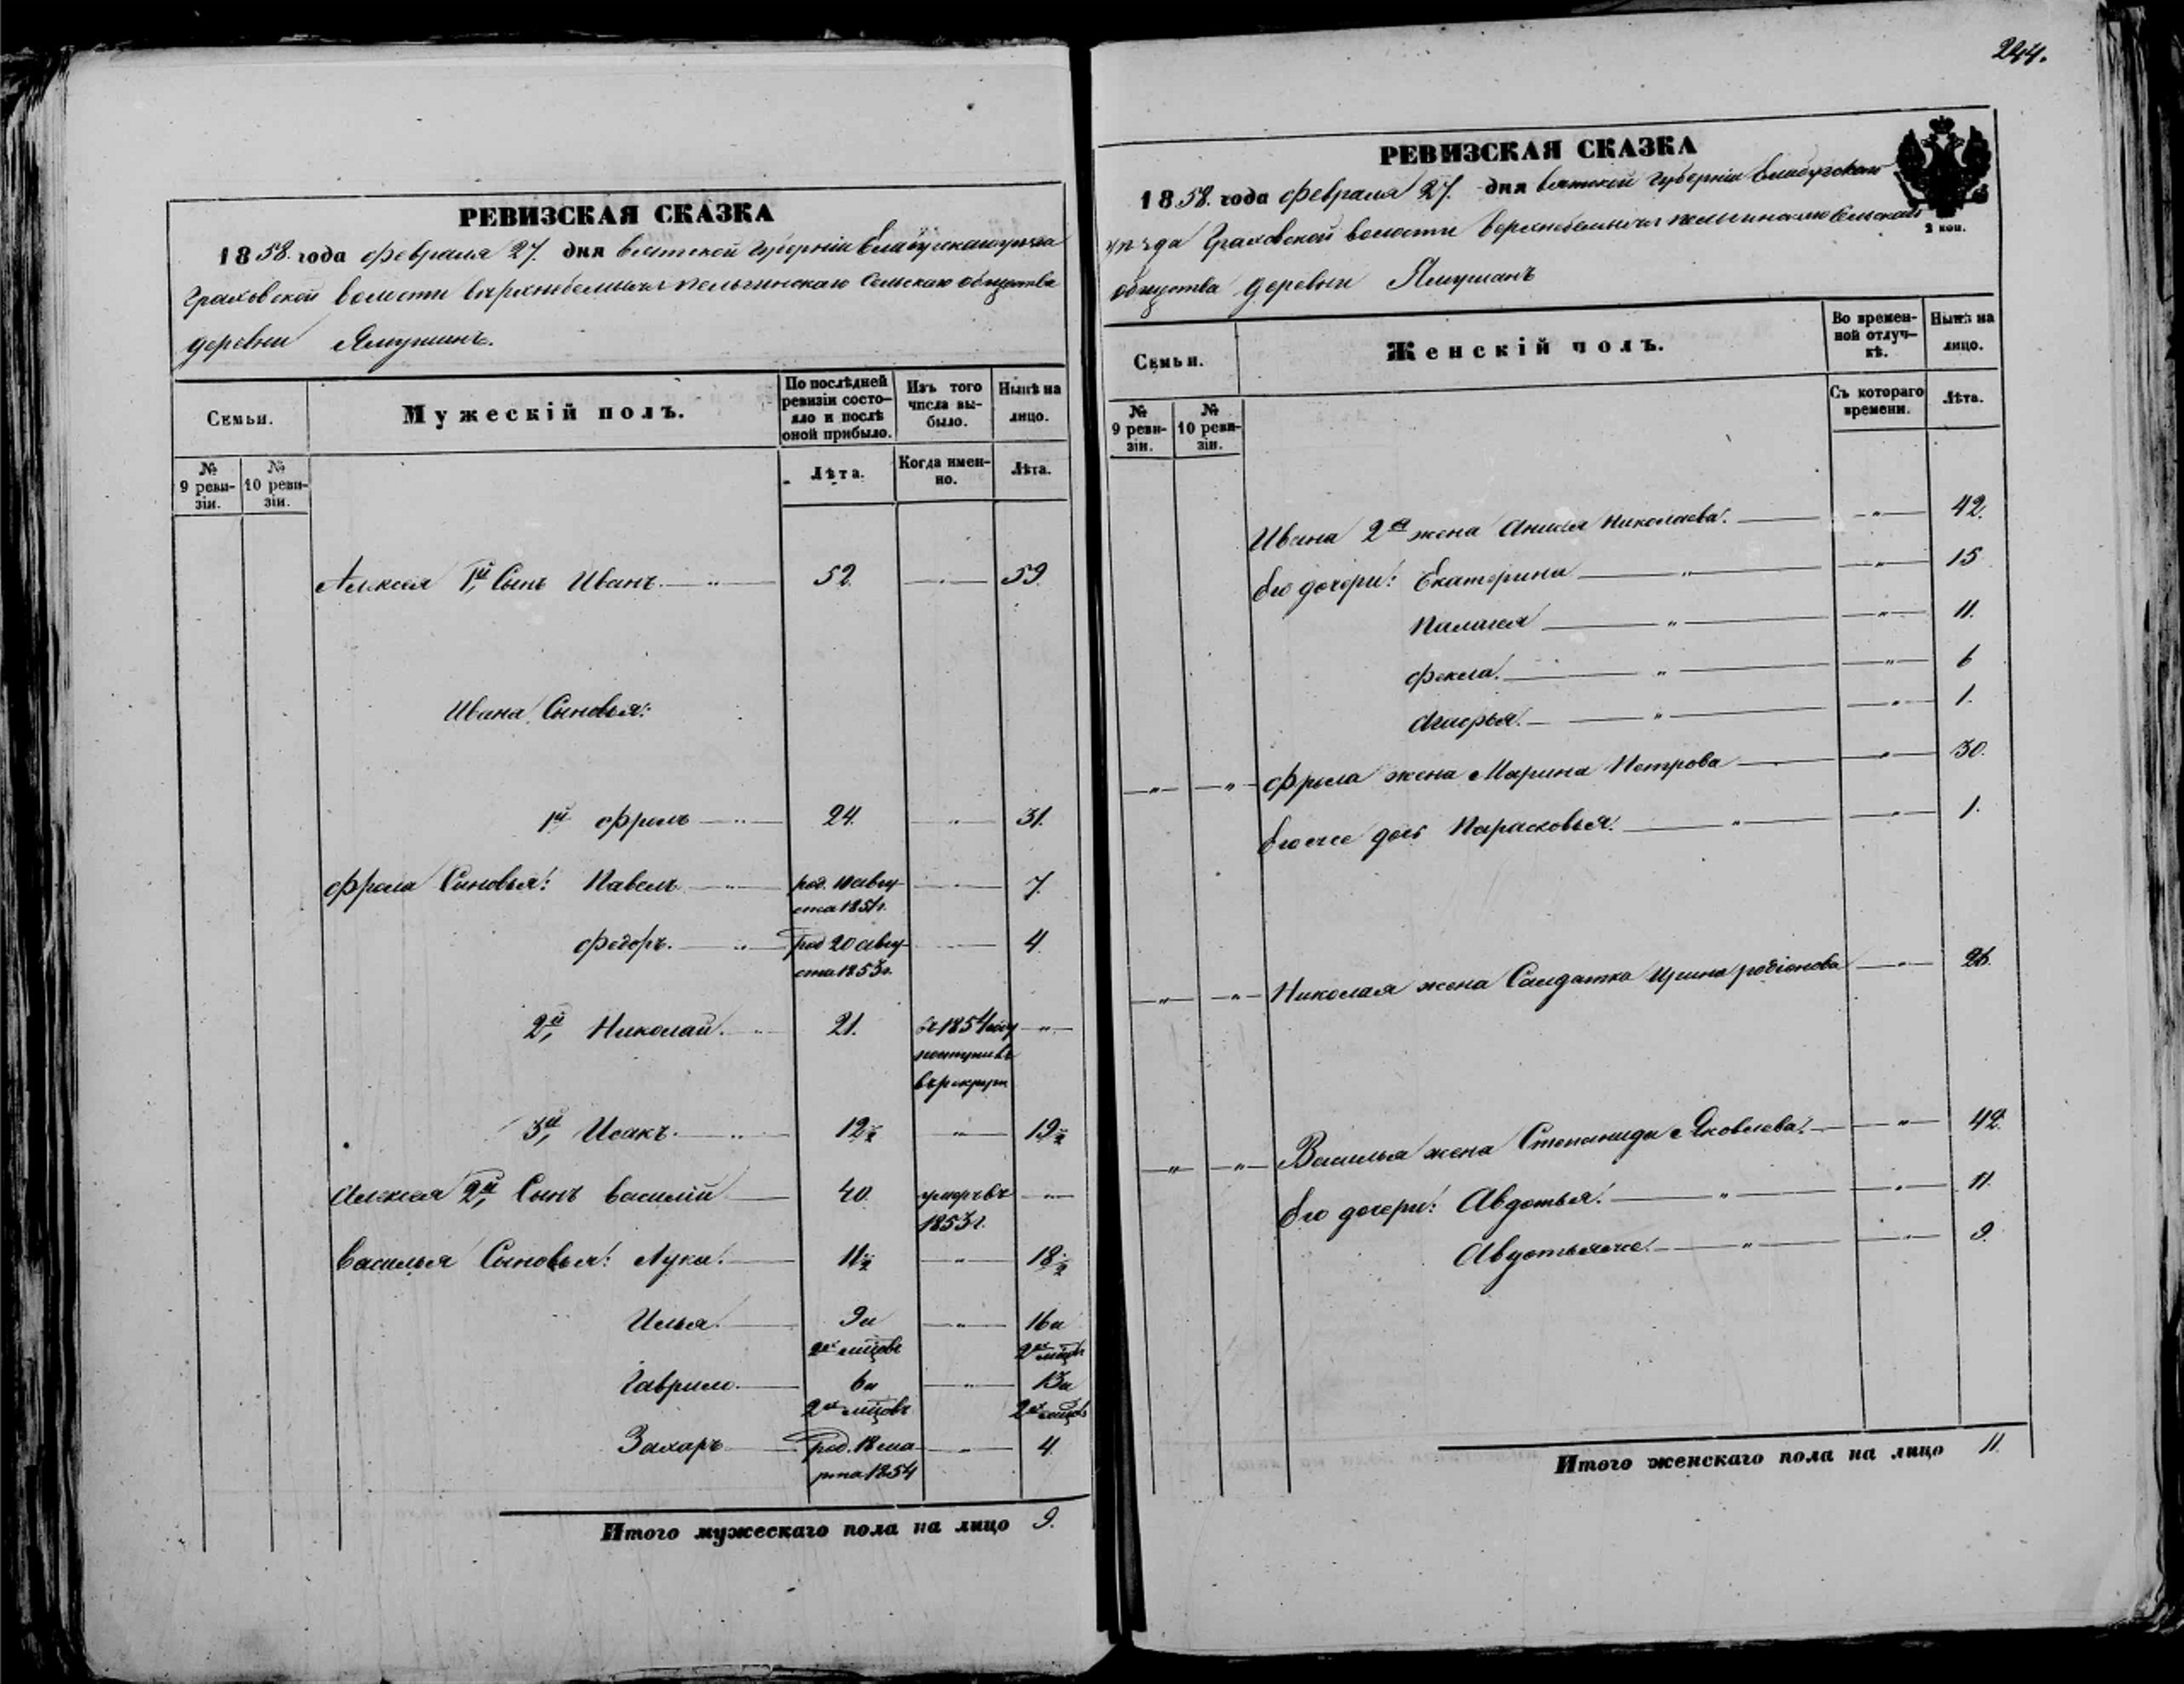 244.
РЕВИЗСКАЯ СКАЗКА
1858. года февраля 27. дня вятской губерніи Елабужскаго уезда
Граховской волости
Сельскаго общества
деревни
Семьи.
Мужескій полъ.
По послѣдней ревизіи состояло и послѣ оной прибыло.
Изъ того числа выбыло.
Нынѣ на лицо.
№ 9 ревизіи.
№ 10 ревизіи.
Лѣта.
Когда именно.
Лѣта.
Алексея 1й, Сынъ Иванъ. — " — 52. — " — 59.
Ивана Сыновья:
1й Фролъ — " — 24. — " — 31.
Фрола Сыновья: Павелъ — " — род. 10 авгу- — " — 7.
ста 1851г.
Федоръ. — " — род 20 авгу- — " — 4.
ста 1853г.
2й, Николай. — " — 21. въ 1854 году — " —
поступивъ
въ рекруты
3й, Исакъ. — " — 12½ — " — 19½
Алексея 2й, Сынъ Василій — 40. умеръ въ — " —
1853г.
Василья Сыновья: Лука. — 11½ — " — 18½
Илья. — 9и — " — 16и
2хъ мцовъ 2хъ мцовъ
Гаврило. — 6и — " — 13и
2хъ мцовъ 2хъ мцовъ
Захаръ — род. 18 ма- — " — 4.
рта 1854
Итого мужескаго пола на лицо 9.
РЕВИЗСКАЯ СКАЗКА
1858. года февраля 27. дня вятской губерніи Елабужскаго
2 коп.
уѣзда Граховской волости Сельскаго
общества деревни
Семьи.
Женскій полъ.
Во временной отлучкѣ.
Нынѣ на лицо.
№ 9 ревизіи.
№ 10 ревизіи.
Съ котораго времени.
Лѣта.
Ивана 2я жена Анисья Николаева. — " — 42.
Его дочери: Екатерина — " — " — 15
Палагея — " — " — 11.
Фекла. — " — " — 6
— " — " — 1.
— " — " — Фрола жена Марина Петрова — " — 30.
Его же дочь Парасковья. — " — " — 1.
— " — " — Николая жена Салдатка Ирина родіонова — " — 26.
— " — " — Василья жена Степанида Яковлева. — " — 42.
Его дочери: Авдотья. — " — " — 11.
Авдотья же. — " — " — 9.
Итого женскаго пола на лицо 11